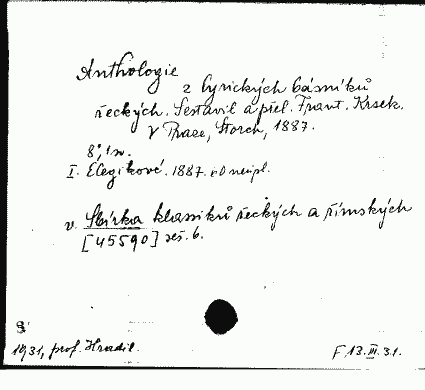 Anthologie
z lyrických básníků
řeckých. Sestavil a přel. Frant. Krsek.
V Praze, Storch, 1887.
8°, 1 sv.
I. Elegikové. 1887. neúpl.
v. Sbírka klassiků řeckých a římských
[45590] seš. 6.
8
1931, prof. Hradil.
F 13.III.31.